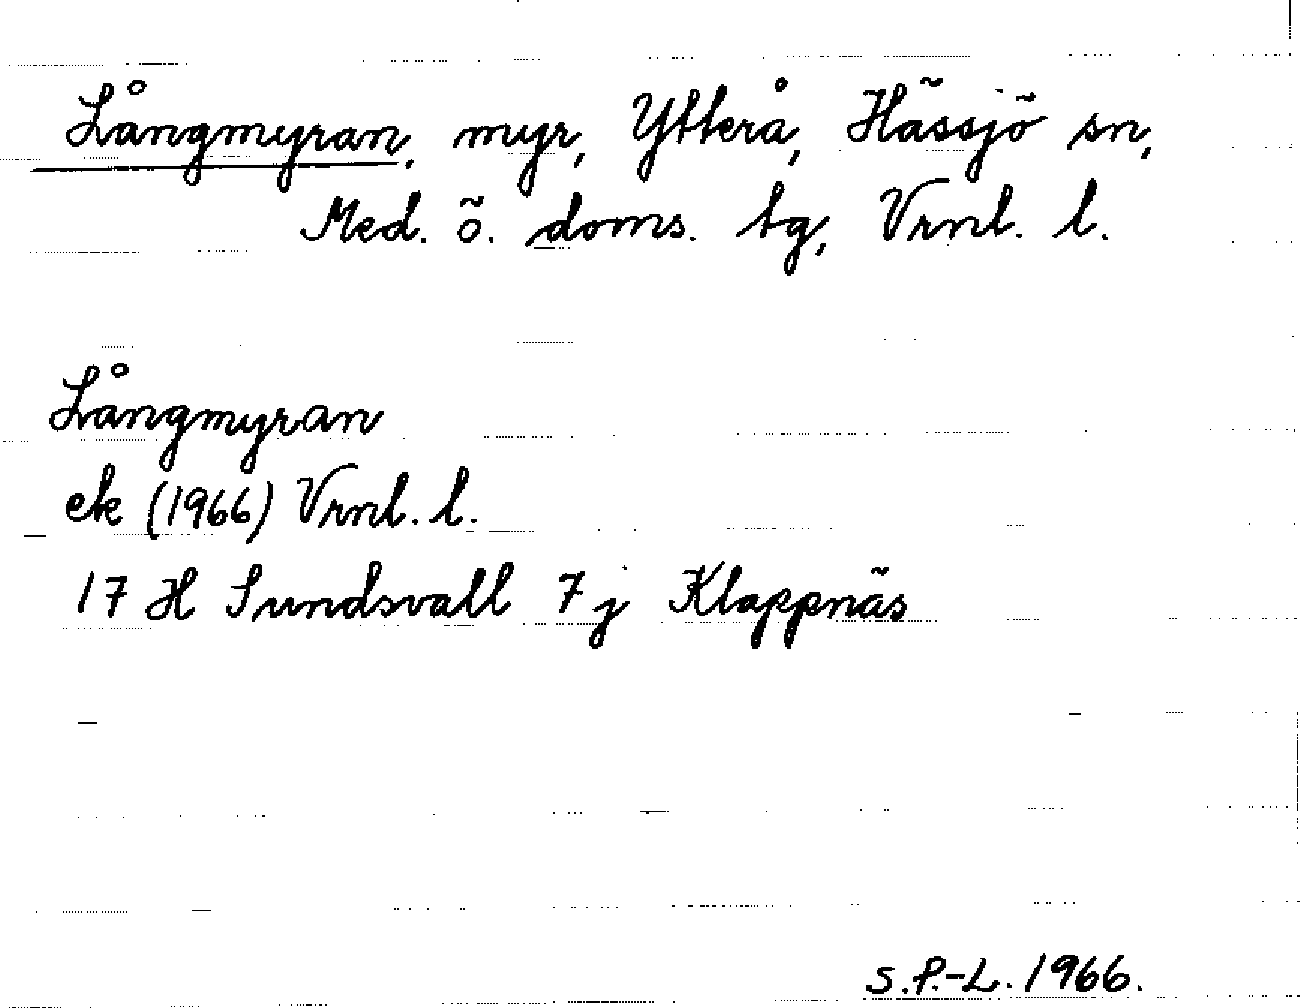 Långmyran, myr, Ytterå, Hässjö sn,
Med. ö. doms. tg, Vrnl. l.
Långmyran
ek (1966) Vrnl. l.
17 H Sundsvall 7 j Klappnäs
S.P.-L. 1966.